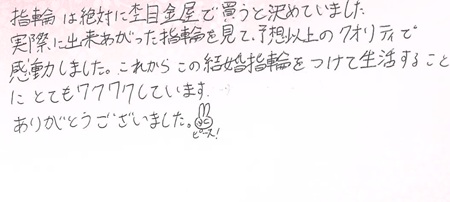 指輪は絶対に杢目金屋で買うと決めていました
実際に出来あがった指輪を見て、予想以上のクオリティで
感動しました。これからこの結婚指輪をつけて生活すること
にとてもワクワクしています。
ありがとうございました。
ピース!